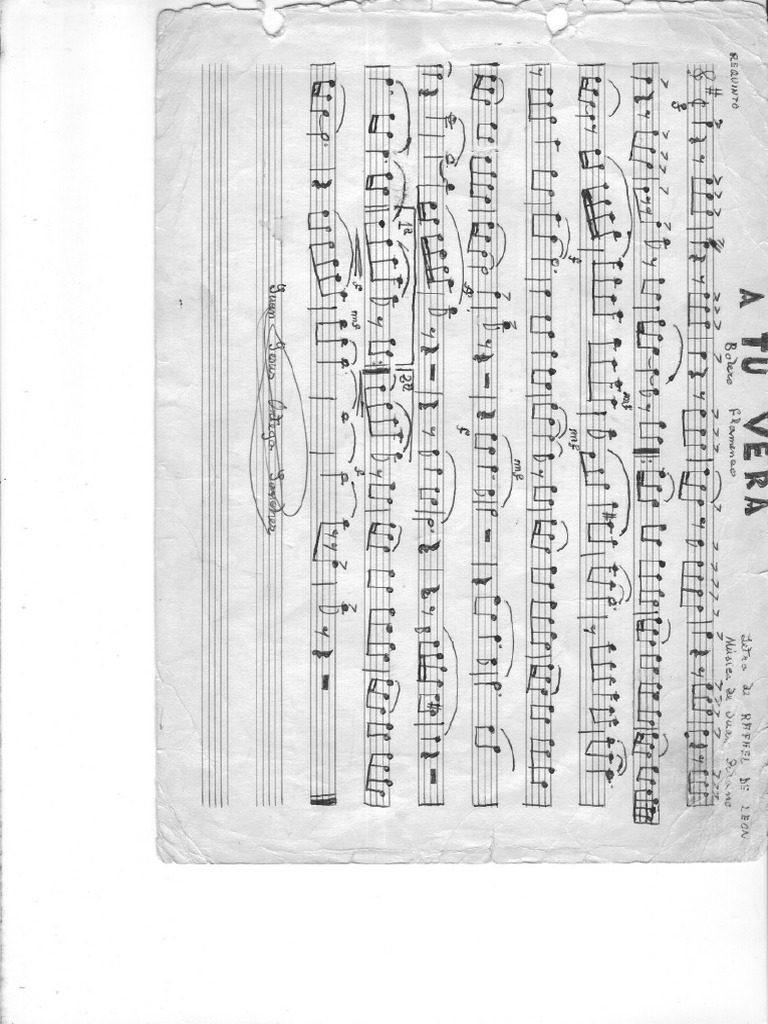 REQUINTO
A TU VERA
Bolero Flamenco
Letra de RAFAEL DE LEON
Música de Juan Solano
f
mf
f
mf
f
1ª
2ª
f
mf
f
Juan Jesus